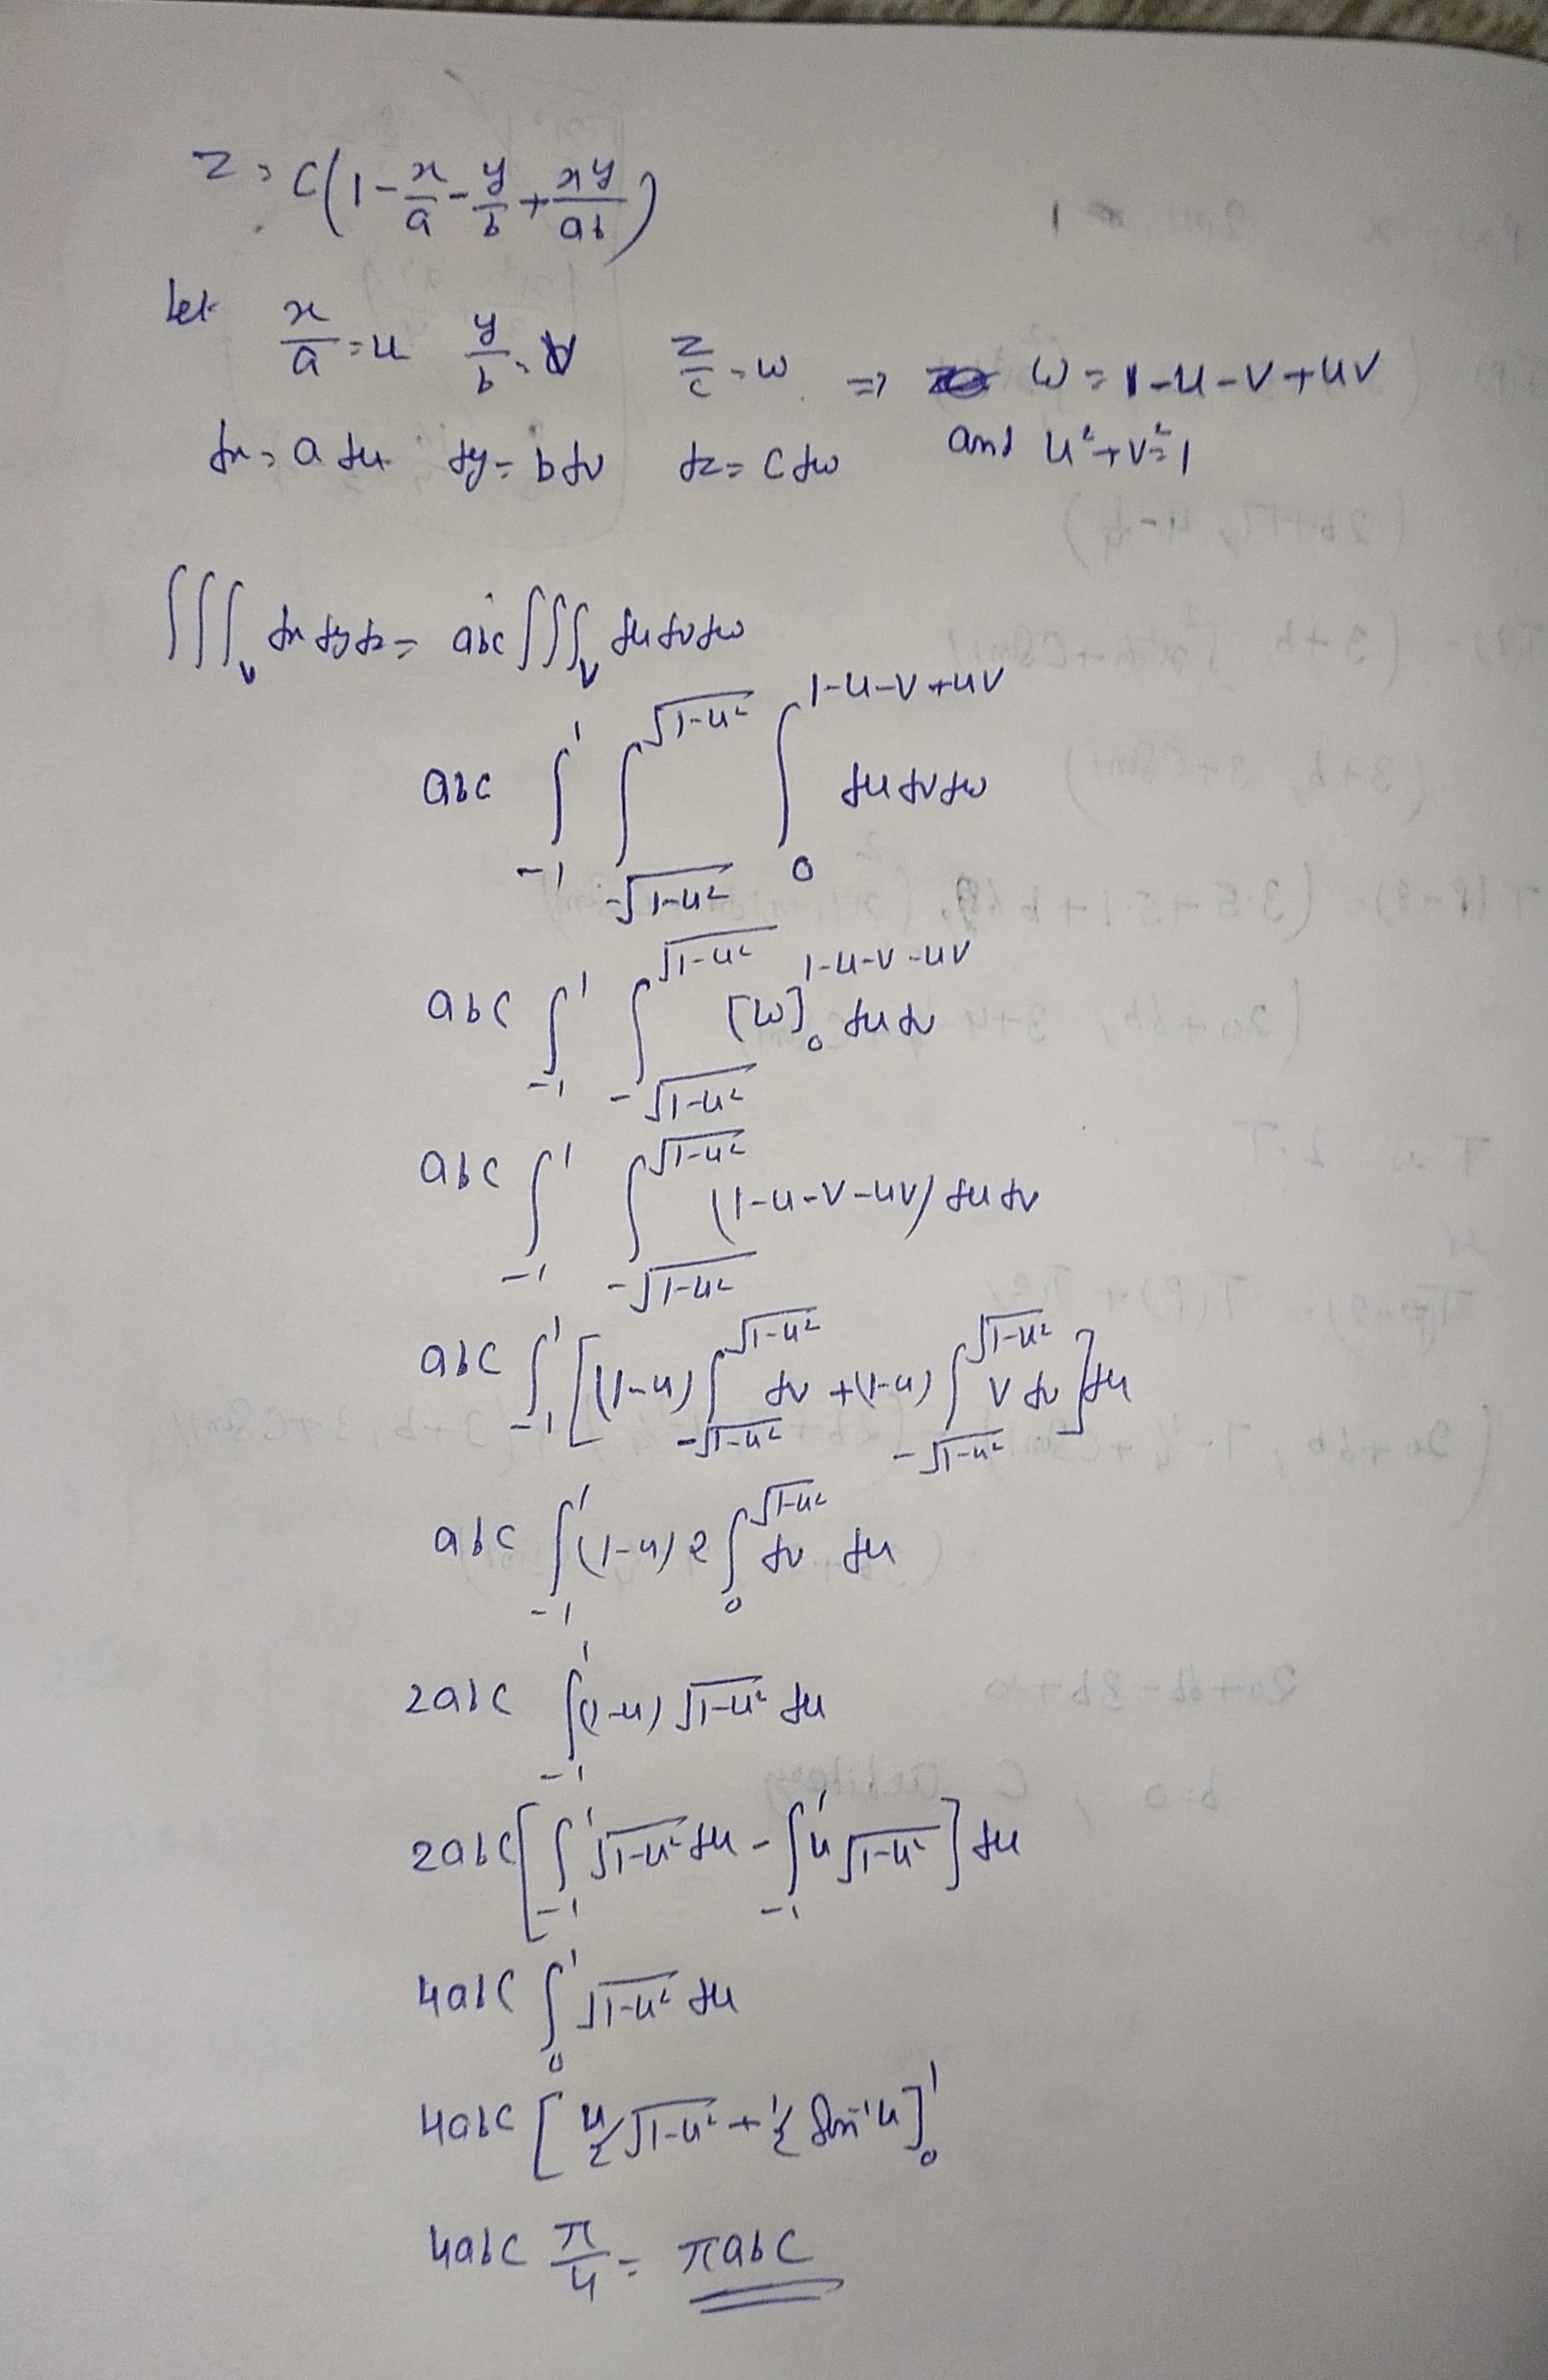 z = c(1 - x/a - y/b + xy/ab)
let x/a = u y/b = v z/c = w ⇒ w = 1-u-v+uv
dx = a du dy = b dv dz = c dw and u²+v²=1
∫∫∫_V dx dy dz = abc ∫∫∫_V du dv dw
abc ∫_{-1}^{1} ∫_{-√(1-u²)}^{√(1-u²)} ∫_{0}^{1-u-v+uv} du dv dw
abc ∫_{-1}^{1} ∫_{-√(1-u²)}^{√(1-u²)} [w]_{0}^{1-u-v-uv} du dv
abc ∫_{-1}^{1} ∫_{-√(1-u²)}^{√(1-u²)} (1-u-v-uv) du dv
abc ∫_{-1}^{1} [(1-u) ∫_{-√(1-u²)}^{√(1-u²)} dv + (1-u) ∫_{-√(1-u²)}^{√(1-u²)} v dv] du
abc ∫_{-1}^{1} (1-u) 2 ∫_{0}^{√(1-u²)} dv du
2abc ∫_{-1}^{1} (1-u) √(1-u²) du
2abc [∫_{-1}^{1} √(1-u²) du - ∫_{-1}^{1} u √(1-u²)] du
4abc ∫_{0}^{1} √(1-u²) du
4abc [u/2 √(1-u²) + 1/2 Sin⁻¹u]_{0}^{1}
4abc π/4 = πabc